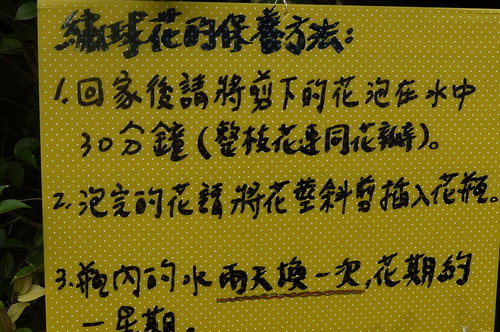 繡球花的保養方法:
1.回家後請將剪下的花泡在水中
30分鐘(整枝花連同花瓣)。
2.泡完的花請將花莖斜剪插入花瓶。
3.瓶內的水兩天換一次,花期約
一星期。